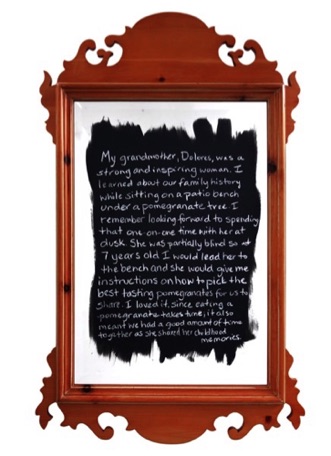 My grandmother, Dolores, was a
strong and inspiring woman. I
learned about our family history
while sitting on a patio bench
under a pomegranate tree. I
remember looking forward to spending
that one-on-one time with her at
dusk. She was partially blind so at
7 years old I would lead her to
the bench and she would give me
instructions on how to pick the
best tasting pomegranates for us to
share. I loved it. Since eating a
pomegranate takes time, it also
meant we had a good amount of time
together as she shared her childhood
memories.